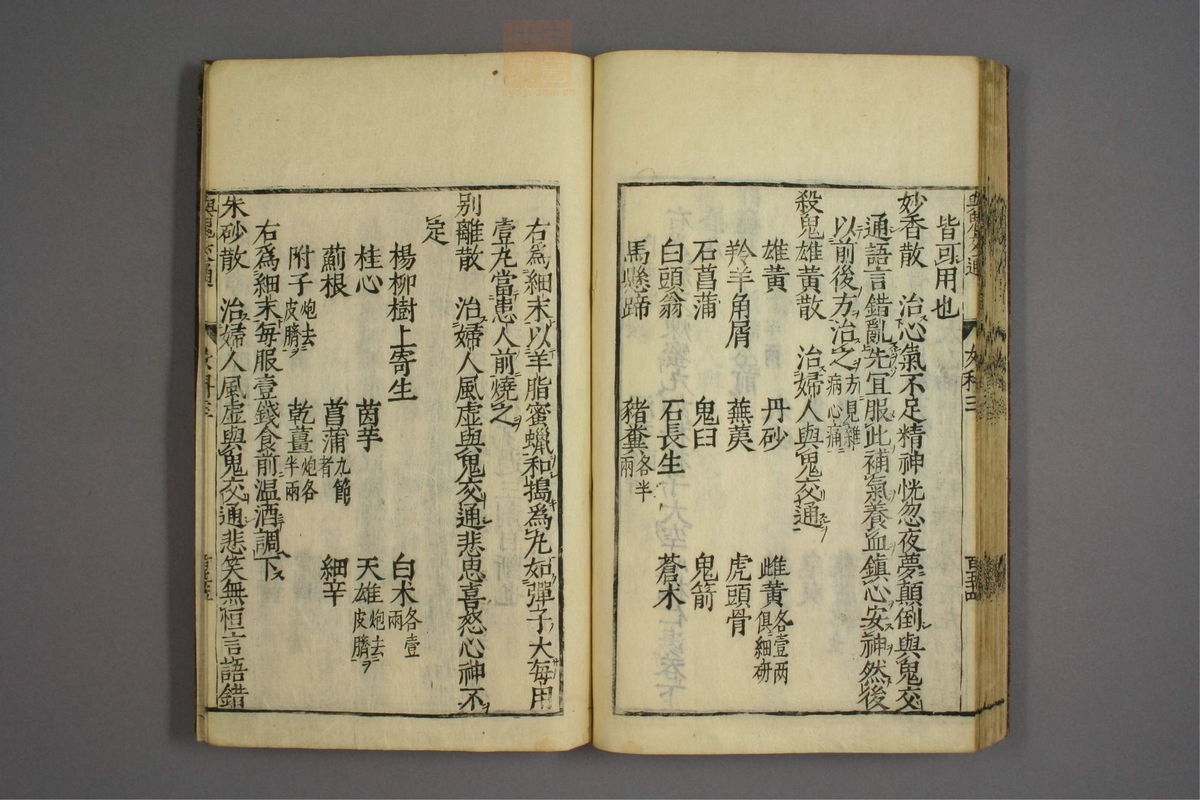 皆可用也
妙香散　治心氣不足精神恍忽夜夢顛倒與鬼交
通語言錯亂先宜服此補氣養血鎮心安神然後
以前後方治之方見雜病心痛
殺鬼雄黃散　治婦人與鬼交通
雄黃　丹砂　雌黃各壹两俱細研
羚羊角屑　蕪荑　虎頭骨
石菖蒲　鬼臼　鬼箭
白頭翁　石長生　蒼术
馬懸蹄　豬糞各半兩
右爲細末以羊脂蜜蠟和搗爲丸如彈子大每用
壹丸當患人前燒之
別離散　治婦人風虛與鬼交通悲思喜怒心神不
定
楊柳樹上寄生　白术各壹兩
桂心　茵芋　天雄炮去皮臍
薊根　菖蒲九節者　細辛
附子炮去皮臍　乾薑炮各半兩
右爲細末每服壹錢食前温酒調下
朱砂散　治婦人風虛與鬼交通悲笑無恒言語錯